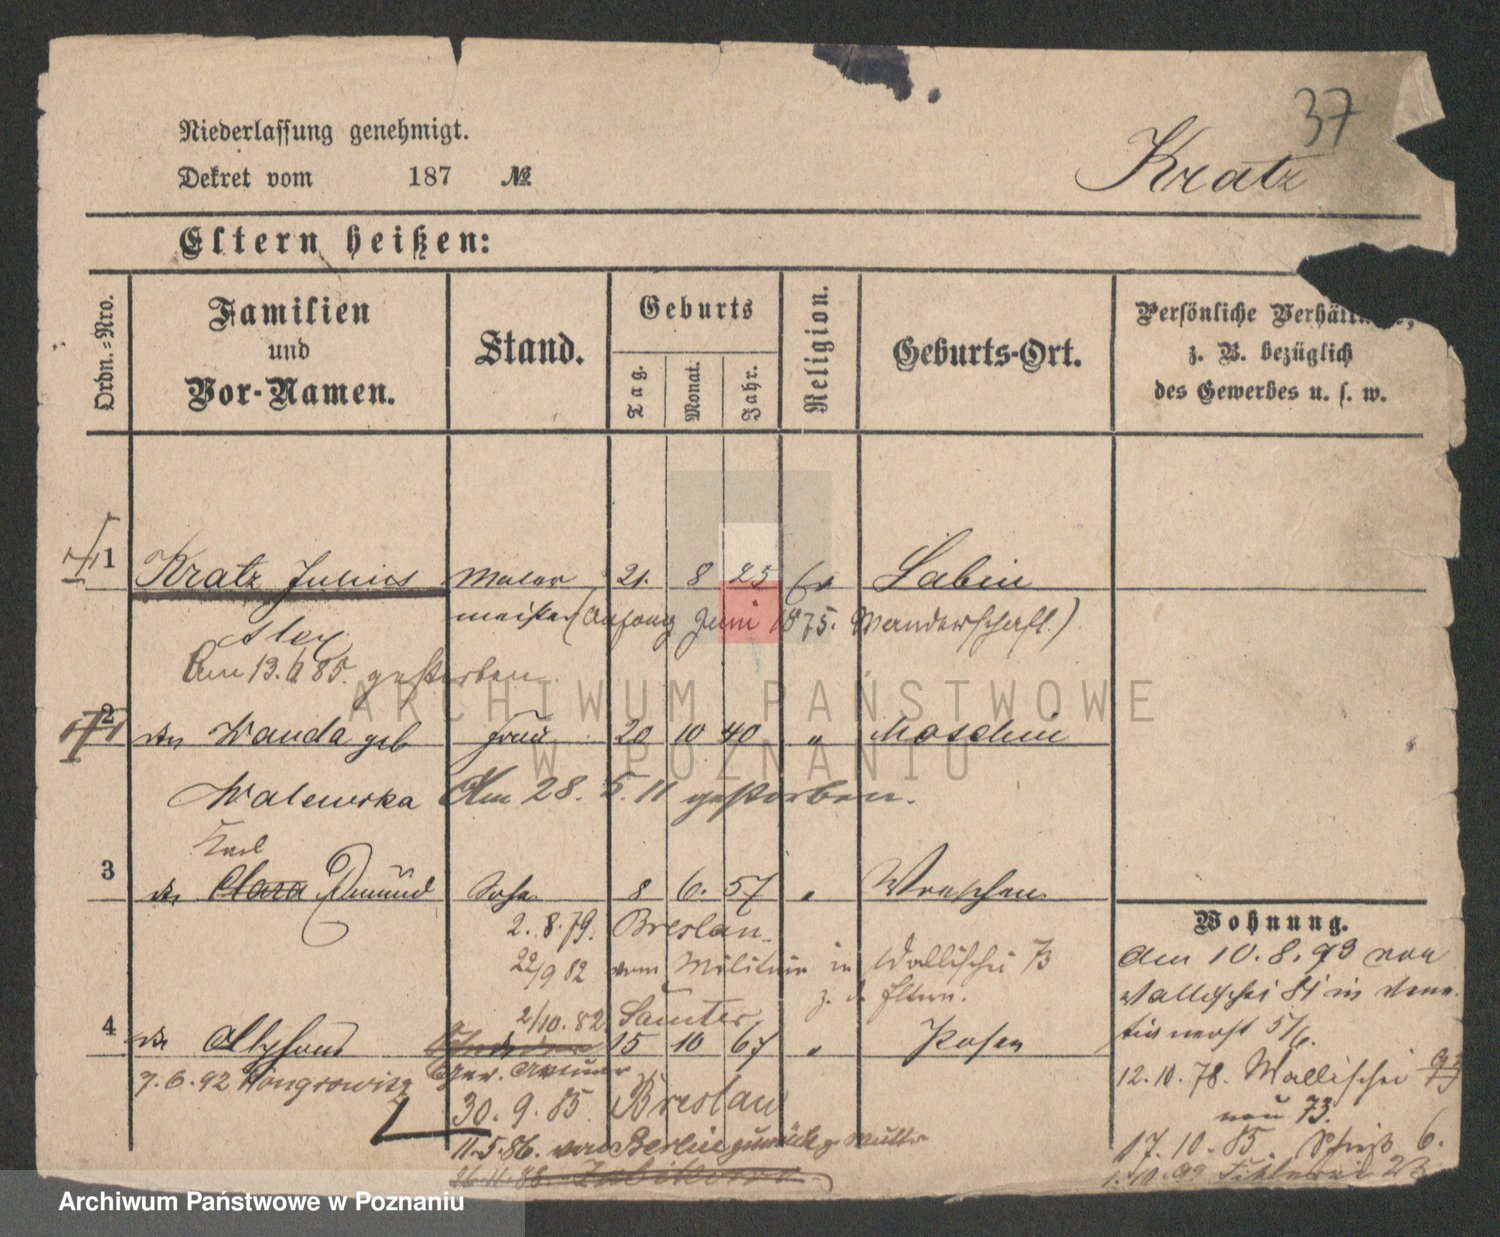 37
Niederlassung genehmigt.
Dekret vom 187 №
Kratz
Eltern heißen:
Ordn.=Nro.
Familien
und
Vor-Namen.
Stand.
Geburts
Tag.
Monat.
Jahr.
Religion.
Geburts-Ort.
Persönliche
z. B. bezüglich
des Gewerbes u. s. w.
1 Kratz Julius Maler 21. 8 25 Labin
meister (Anfang Juni 1875. Wanderschaft.)
Am 13. 6 85. gestorben
ARCHIWUM PAŃSTWOWE
2 Wanda geb Frau 20 10 40 " Moschin
W POZNANIU
Walewska Am 28. 5. 11 gestorben.
Karl
3 Clara Edmund Sohn 8 6. 57 " Wreschen
2. 8. 79. Breslau.
22/9 82 vom Militair in Wallischei 73
z. d. Eltern.
2/10. 82. Samter
4 15 10 67 " Posen
7. 6. 92 Wongrowitz
30. 9. 85. Breslau
11. 5. 86. von Berlin zurück z. Mutter
Wohnung.
Am 10. 8. 93 von
Wallischei
5/6.
12. 10. 78. Wallischei 93
neu 73.
17. 10. 85. 6.
Archiwum Państwowe w Poznaniu